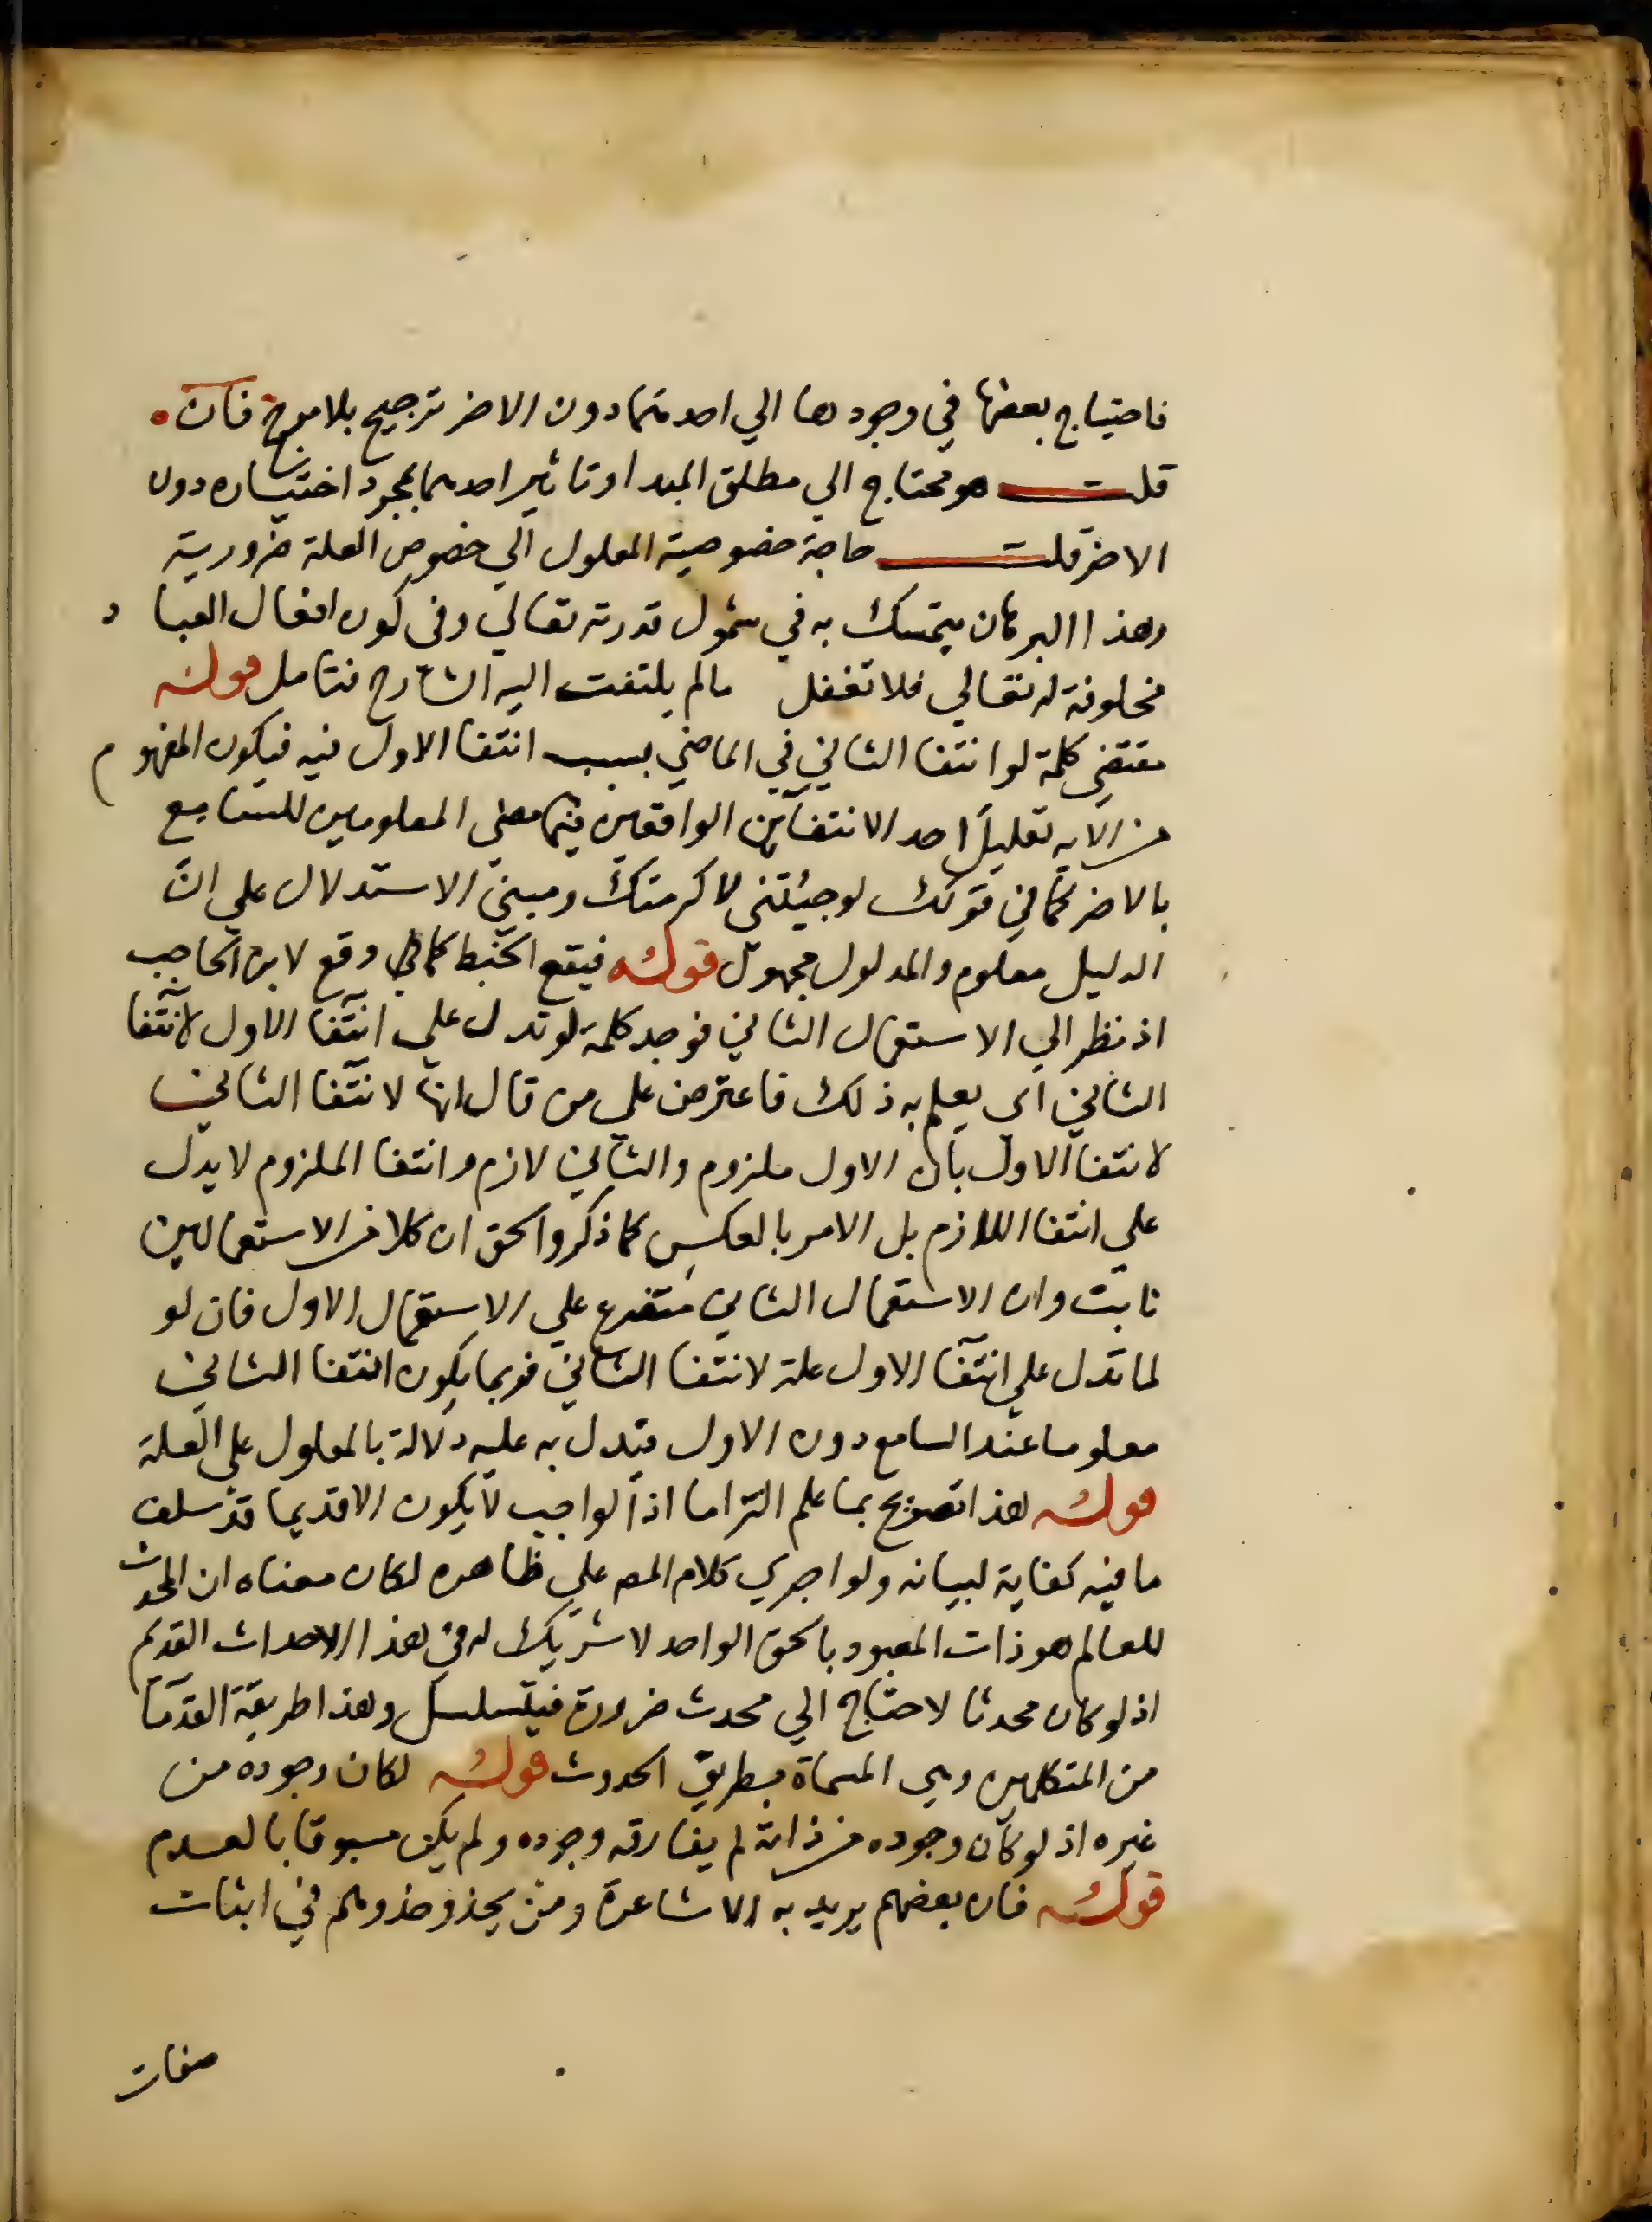 فاحتياج بعضها في وجودها الي احدهما دون الاخر ترجيح بلا مرجح فان
قلت هو محتاج الي مطلق المبدا وتاثير احدهما بمجرد اختياره دون
الاخر قلت حاجة خصوصية المعلول الي خصوص العلة ضرورية
وهذا البرهان يتمسك به في شمول قدرته تعالي وفي كون افعال العباد
مخلوقة له تعالي فلا تغفل مالم يلتفت اليه الشارح فتامل قوله
مقتضي كلمة لو انتفا الثاني في الماضي بسبب انتفا الاول فيه فيكون المفهوم
من الايه تعليل احد الانتفائين الواقعين فيما مضي المعلومين للسامع
بالاخر كما في قولك لو جيئتني لاكرمتك ومبني الاستدلال علي ان
الدليل معلوم والمدلول مجهول قوله فيقع الخبط كما وقع لابن الحاجب
اذ نظر الي الاستعمال الثاني فوجد كلمة لو تدل علي انتفا الاول لانتفا
الثاني اي يعلم به ذلك فاعترض علي من قال انها لانتفا الثاني
لانتفا الاول بان الاول ملزوم والثاني لازم وانتفا الملزوم لا يدل
علي انتفا اللازم بل الامر بالعكس كما ذكر والحق ان كلا من الاستعمالين
ثابت وان الاستعمال الثاني متفرع علي الاستعمال الاول فان لو
لما تدل علي انتفا الاول علة لانتفا الثاني فربما يكون انتفا الثاني
معلوما عند السامع دون الاول فيدل به عليه دلالة بالمعلول علي العلة
قوله هذا تصريح بما علم التزاما اذ الواجب لا يكون الا قديما قد سلف
ما فيه كفاية لبيانه ولو اجري كلام المص علي ظاهره لكان معناه ان المحدث
للعالم هو ذات المعبود بالحق الواحد لا شريك له في هذا الاحداث القديم
اذ لو كان محدثا لاحتاج الي محدث ضرورة فيتسلسل وهذا طريقة القدما
من المتكلمين وهي المسماة بطريق الحدوث قوله لكان وجوده من
غيره اذ لو كان وجوده من ذاته لم يفارقه وجوده ولم يكن مسبوقا بالعدم
قوله فان بعضهم يريد به الاشاعرة ومن يحذو حذوهم في اثبات
صفات